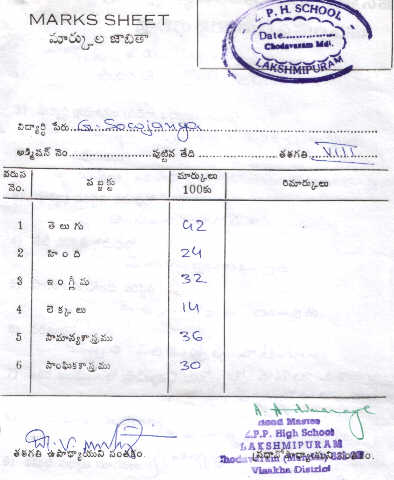 MARKS SHEET
మార్కుల జాబితా
Z. P. H. SCHOOL
Date................
Chodavaram Mdl.
LAKSHMIPURAM
విద్యార్థి పేరు G. Sowjanya
అడ్మిషన్ నెం. పుట్టిన తేది తరగతి VIII
వరుస నెం. సబ్జక్టు మార్కులు 100కు రిమార్కులు
1 తెలుగు 42
2 హింది 24
3 ఇంగ్లీషు 32
4 లెక్కలు 14
5 సామాన్యశాస్త్రము 36
6 సాంఘికశాస్త్రము 30
Head Master
Z.P.P. High School
LAKSHMIPURAM
తరగతి ఉపాధ్యాయుని సంతకం.
Visakha District